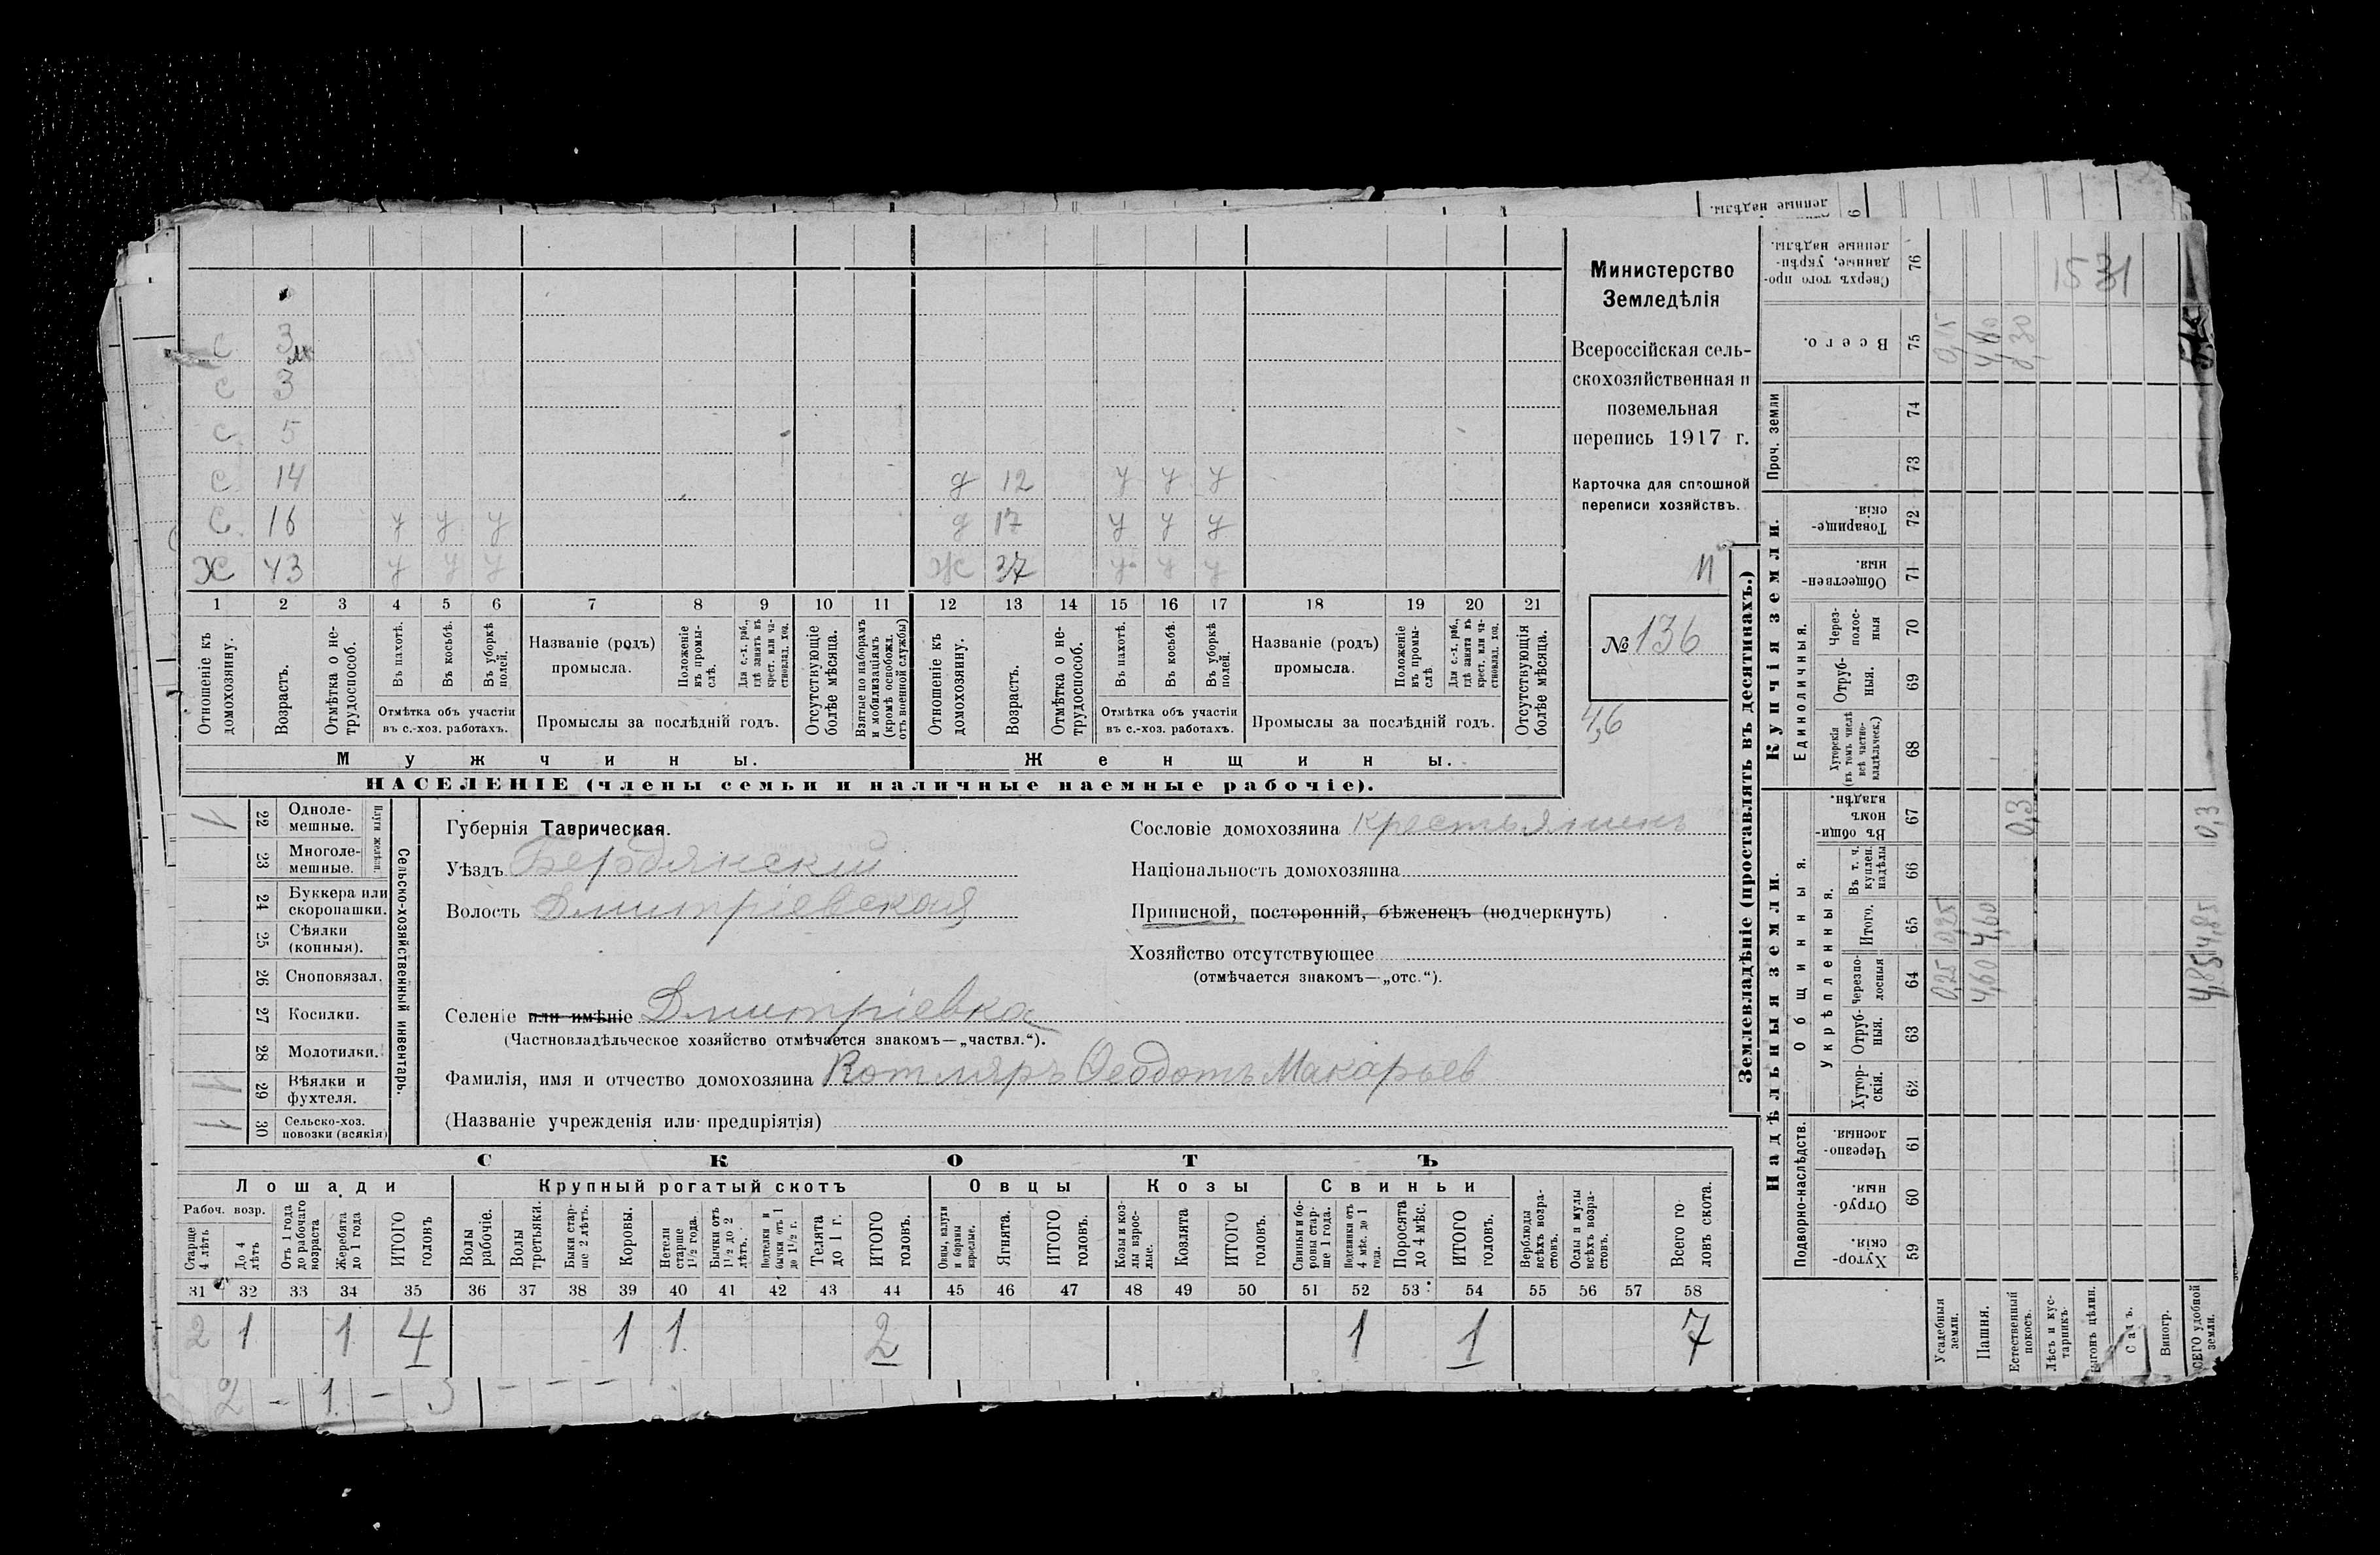 Министерство
Земледѣлія
Всероссійская сель-
скохозяйственная и
поземельная
перепись 1917 г.
Карточка для сплошной
переписи хозяйствъ.
п
№ 136
4,6
С 3
С 3
С 5
С 14 д 12 у у у
С 16 у у у д 17 у у у
Х 43 у у у Ж 37 у у у
1 2 3 4 5 6 7 8 9 10 11 12 13 14 15 16 17 18 19 20 21
Отношеніе къ домохозяину.
Возрастъ.
Отмѣтка о не-трудоспособ.
Въ пахотѣ.
Въ косьбѣ.
Въ уборкѣ полей.
Отмѣтка объ участіи въ с.-хоз. работахъ.
Названіе (родъ) промысла.
Положеніе въ промы-слѣ.
Для с.-х. раб., гдѣ занятъ въ крест. или ча-стновлад. хоз.
Промыслы за послѣдній годъ.
Отсутствующіе болѣе мѣсяца.
Взятые по наборамъ и мобилизаціямъ (кромѣ освобожд. отъ военной службы)
Отношеніе къ домохозяину.
Возрастъ.
Отмѣтка о не-трудоспособ.
Въ пахотѣ.
Въ косьбѣ.
Въ уборкѣ полей.
Отмѣтка объ участіи въ с.-хоз. работахъ.
Названіе (родъ) промысла.
Положеніе въ промы-слѣ.
Для с.-х. раб., гдѣ занята въ крест. или ча-стновлад. хоз.
Промыслы за послѣдній годъ.
Отсутствующія болѣе мѣсяца.
Мужчины. Женщины.
НАСЕЛЕНІЕ (члены семьи и наличные наемные рабочіе).
Сельско-хозяйственный инвентарь.
Плуги желѣзн.
1 22 Одноле-мешные.
23 Многоле-мешные.
24 Буккера или скоропашки.
25 Сѣялки (конныя).
26 Сноповязал.
27 Косилки.
28 Молотилки.
1 29 Вѣялки и фухтеля.
1 30 Сельско-хоз. повозки (всякія)
Губернія Таврическая.
Уѣздъ Бердянскій
Волость Дмитріевская
Сословіе домохозяина крестьянинъ
Національность домохозяина
Приписной, посторонній, бѣженецъ (подчеркнуть)
Хозяйство отсутствующее
(отмѣчается знакомъ—„отс.“).
Селеніе или имѣніе Дмитріевка
(Частновладѣльческое хозяйство отмѣчается знакомъ—„частвл.“).
Фамилія, имя и отчество домохозяина Котляръ Ѳеодотъ Макарьев
(Названіе учрежденія или предпріятія)
СКОТЪ
Лошади Крупный рогатый скотъ Овцы Козы Свиньи
Рабоч. возр.
Старше 4 лѣтъ
До 4 лѣтъ
Отъ 1 года до рабочаго возраста
Жеребята до 1 года
ИТОГО головъ
Волы рабочіе.
Волы третьяки.
Быки стар-ше 2 лѣтъ.
Коровы.
Нетели старше 1½ года.
Бычки отъ 1½ до 2 лѣтъ.
Подтелки и бычки отъ 1 до 1½ г.
Телята до 1 г.
ИТОГО головъ.
Овцы, валухи и бараны взрослые.
Ягнята.
ИТОГО головъ.
Козы и коз-лы взрос-лые.
Козлята
ИТОГО головъ.
Свиньи и бо-ровы стар-ше 1 года.
Подсвинки отъ 4 мѣс. до 1 года.
Поросята до 4 мѣс.
ИТОГО головъ.
Верблюды всѣхъ возра-стовъ.
Ослы и мулы всѣхъ возра-стовъ.
Всего го-ловъ скота.
31 32 33 34 35 36 37 38 39 40 41 42 43 44 45 46 47 48 49 50 51 52 53 54 55 56 57 58
2 1 1 4 1 1 2 1 1 7
2 - 1 - 3 - - -
Землевладѣніе (проставлять въ десятинахъ.)
Купчія земли.
Надѣльныя земли.
Проч. земли
Сверхъ того про-данные, укрѣп-ленные надѣлы. 76
Всего. 75
74
73
Товарище-скія. 72
Обществен-ныя. 71
Единоличныя.
Через-полос-ныя 70
Отруб-ныя. 69
Хуторскія (въ томъ числѣ всѣ частно-владѣльческ.) 68
Общинныя.
Въ общин-номъ владѣн. 67
Укрѣпленныя.
Въ т. ч. куплен. надѣлы 66
Итого. 65
Черезпо-лосныя 64
Отруб-ныя. 63
Хутор-скія. 62
Подворно-наслѣдств.
Черезпо-лосныя. 61
Отруб-ныя. 60
Хутор-скія. 59
Усадебныя земли. 0,25 0,25
Пашня. 4,60 4,60
Естественный покосъ. 0,3 0,30
Лѣсъ и кус-тарникъ
Выгонъ цѣлин.
Садъ.
Виногр.
ВСЕГО удобной земли. 4,85 4,85 0,3
1531
ленные надѣлы.